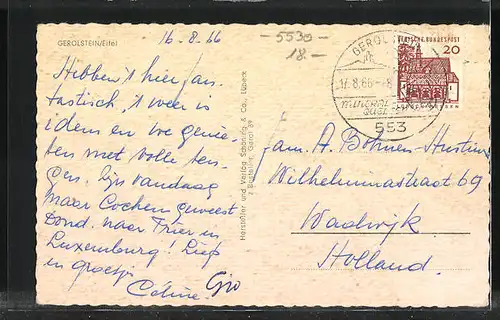 GEROLSTEIN/Eifel
16-8.66
-5530-
18.-
Hebben 't hier fan
tastisch, 't weer is
idem en we genie-
ten met volle teu-
gen. Zijn vandaag
naar Cochem geweest
Dond. naar Trier en
Luxemburg! Liefs
en groetjes
Céline
Gerolstein
17.8.66-8
553
DEUTSCHE BUNDESPOST
20
Hersteller und Verlag Schöning & Co., Lübeck
Fam. A Böhmer-
Wilhelminastraat 69
Waalwijk
Holland.